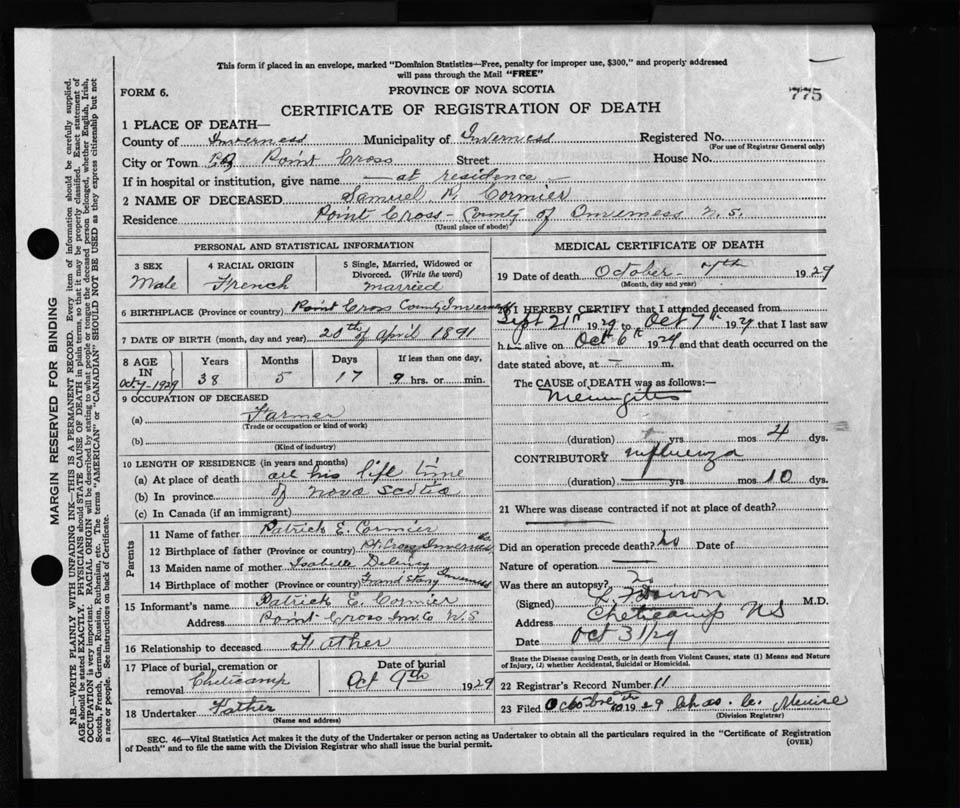 This form if placed in an envelope, marked "Dominion Statistics—Free, penalty for improper use, $300," and properly addressed
will pass through the Mail "FREE"
FORM 6.
PROVINCE OF NOVA SCOTIA
775
CERTIFICATE OF REGISTRATION OF DEATH
1 PLACE OF DEATH—
County of Inverness Municipality of Inverness Registered No.
(For use of Registrar General only)
City or Town Point Cross Street House No.
If in hospital or institution, give name — at residence —
2 NAME OF DECEASED Samuel P. Cormier
Residence Point Cross - County of Inverness N.S.
(Usual place of abode)
PERSONAL AND STATISTICAL INFORMATION
3 SEX
Male
4 RACIAL ORIGIN
French
5 Single, Married, Widowed or
Divorced. (Write the word)
married
6 BIRTHPLACE (Province or country) Point Cross County Inverness
7 DATE OF BIRTH (month, day and year) 20th of April 1891
8 AGE
IN
Oct 7-1929
Years
38
Months
5
Days
17
If less than one day,
9 hrs. or min.
9 OCCUPATION OF DECEASED
(a) Farmer
(Trade or occupation or kind of work)
(b)
(Kind of industry)
10 LENGTH OF RESIDENCE (in years and months)
(a) At place of death all his life time
(b) In province of Nova Scotia
(c) In Canada (if an immigrant)
Parents
11 Name of father Patrick E. Cormier
12 Birthplace of father (Province or country) Pt. Cross Inverness Co.
13 Maiden name of mother Isabelle
14 Birthplace of mother (Province or country) Grand Etang Inverness
15 Informant's name Patrick E. Cormier
Address Point Cross Inv. Co N.S
16 Relationship to deceased Father
17 Place of burial, cremation or
removal Cheticamp
Date of burial
Oct 9th 1929
18 Undertaker Father
(Name and address)
MEDICAL CERTIFICATE OF DEATH
19 Date of death October - 7th 1929
(Month, day and year)
20 I HEREBY CERTIFY that I attended deceased from
Sept 21st 1929 to Oct 7th 1929 that I last saw
him alive on Oct 6th 1929 and that death occurred on the
date stated above, at — m.
The CAUSE of DEATH was as follows:—
Meningitis
(duration) yrs mos 4 dys.
CONTRIBUTORY Influenza
(duration) yrs mos 10 dys.
21 Where was disease contracted if not at place of death?
Did an operation precede death? No Date of
Nature of operation
Was there an autopsy? No
(Signed) M.D.
Address Cheticamp NS
Date Oct 31/29
State the Disease causing Death, or in death from Violent Causes, state (1) Means and Nature
of Injury, (2) whether Accidental, Suicidal or Homicidal.
22 Registrar's Record Number 11
23 Filed 1929 Chas. C.
(Division Registrar)
SEC. 46—Vital Statistics Act makes it the duty of the Undertaker or person acting as Undertaker to obtain all the particulars required in the "Certificate of Registration
of Death" and to file the same with the Division Registrar who shall issue the burial permit.
(OVER)
MARGIN RESERVED FOR BINDING
N.B.—WRITE PLAINLY WITH UNFADING INK—THIS IS A PERMANENT RECORD. Every item of information should be carefully supplied.
AGE should be stated EXACTLY. PHYSICIANS should STATE CAUSE OF DEATH in plain terms, so that it may be properly classified. Exact statement of
OCCUPATION is very important. RACIAL ORIGIN will be described by stating to what people or race the deceased person belonged, whether English, Irish,
Scotch, French, German, Russian, Ruthenian, etc. The terms "AMERICAN" or "CANADIAN" SHOULD NOT BE USED as they express citizenship but not
a race or people. See instructions on back of Certificate.